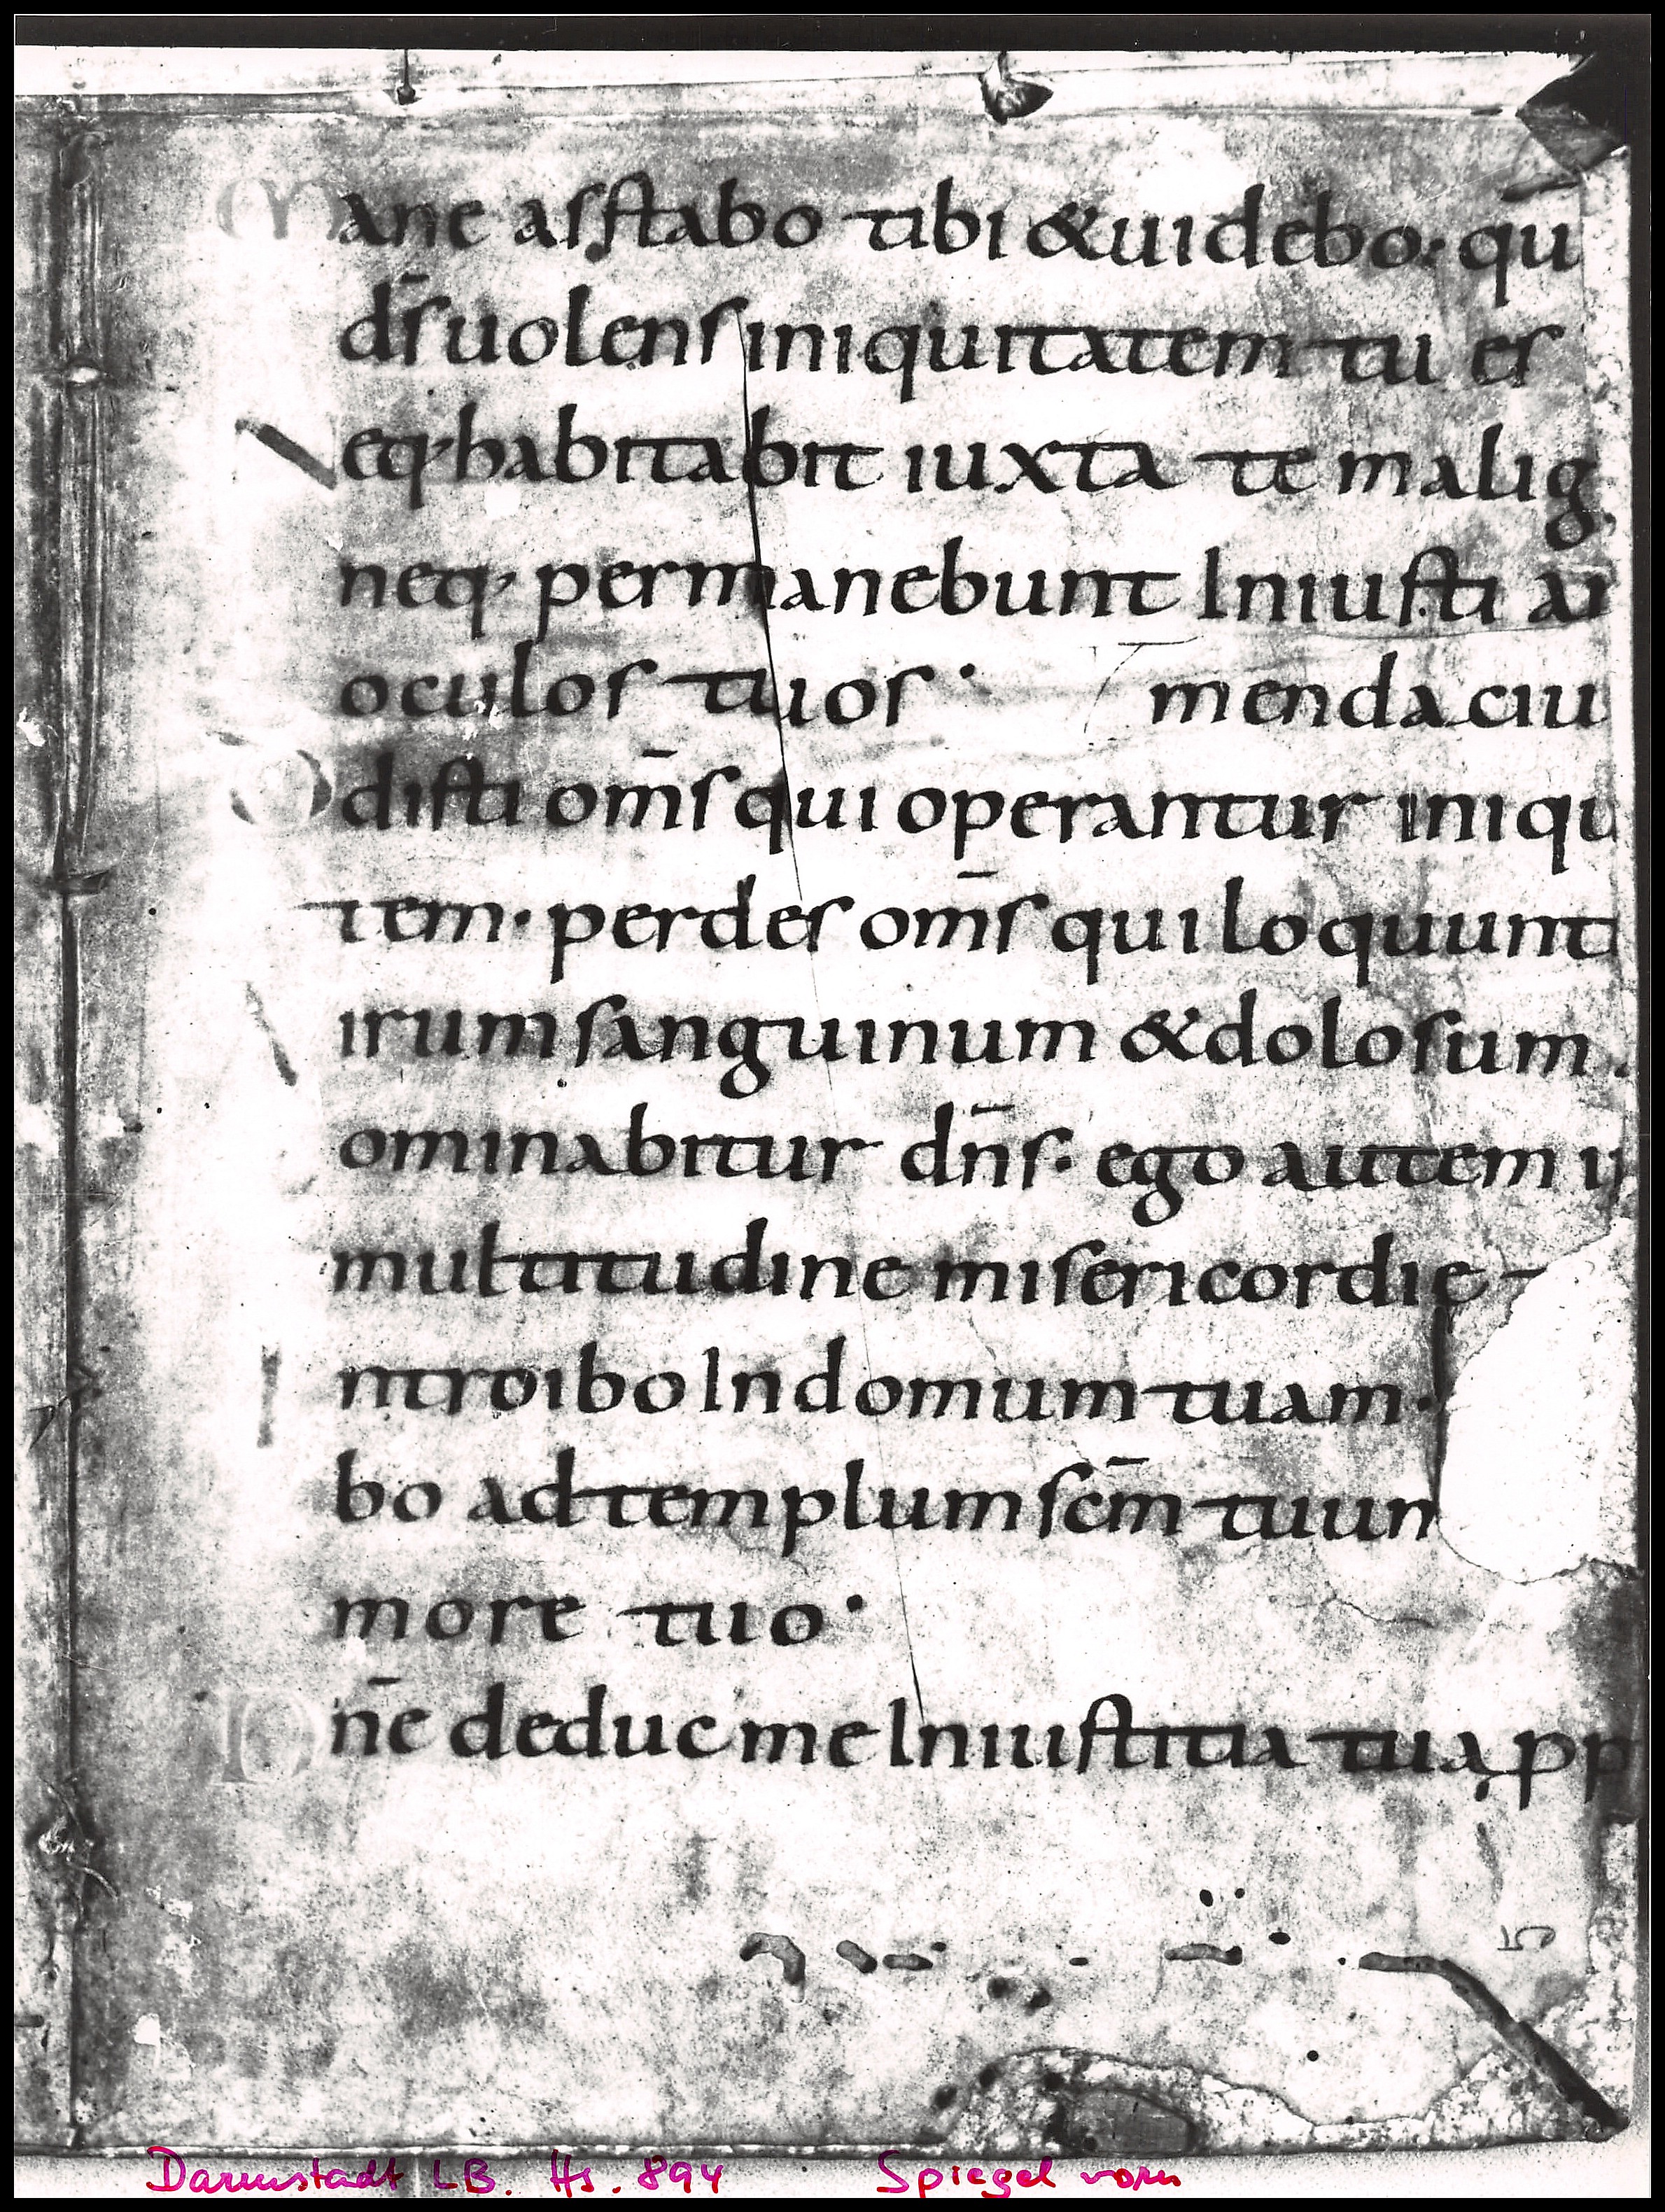 Mane asstabo tibi & uidebo· qū
ds̄ uolens iniquitatem tu es
Neq· habitabit iuxta te malig
neq· permanebunt Iniusti an
oculos tuos· mendaciu
Odisti om̄s qui operantur iniqu
tem· perdes om̄s qui loquunt
irum sanguinum & dolosum
ominabitur dn̄s· ego autem in
multitudine misericordie
Introibo In domum tuam·
bo ad templum scm̄ tuum
more tuo·
Dn̄e deduc me In iustitia tua pp
5
Darmstadt LB. Hs. 894 Spiegel vorn